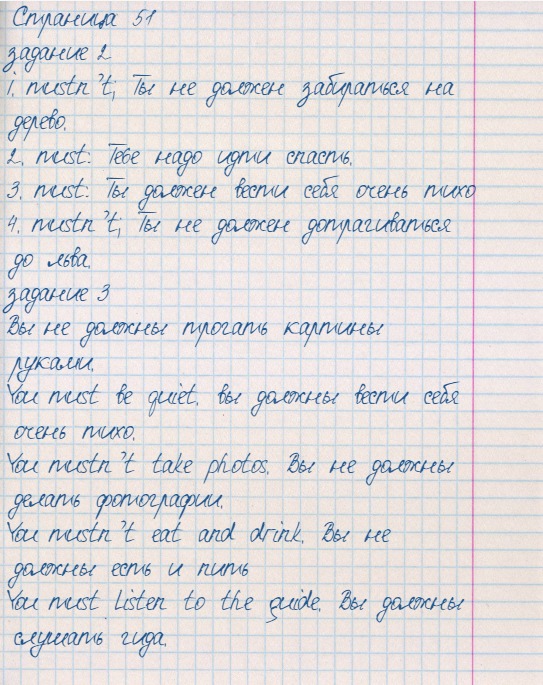 Страница 51
задание 2
1. mustn't; Ты не должен забираться на
дерево.
2. must: Тебе надо идти спасть.
3. must: Ты должен вести себя очень тихо
4. mustn't; Ты не должен дотрагиваться
до льва.
задание 3
Вы не должны трогать картины
руками.
You must be quiet. вы должны вести себя
очень тихо.
You mustn't take photos. Вы не должны
делать фотографии.
You mustn't eat and drink. Вы не
должны есть и пить
You must Listen to the guide. Вы должны
слушать гида.